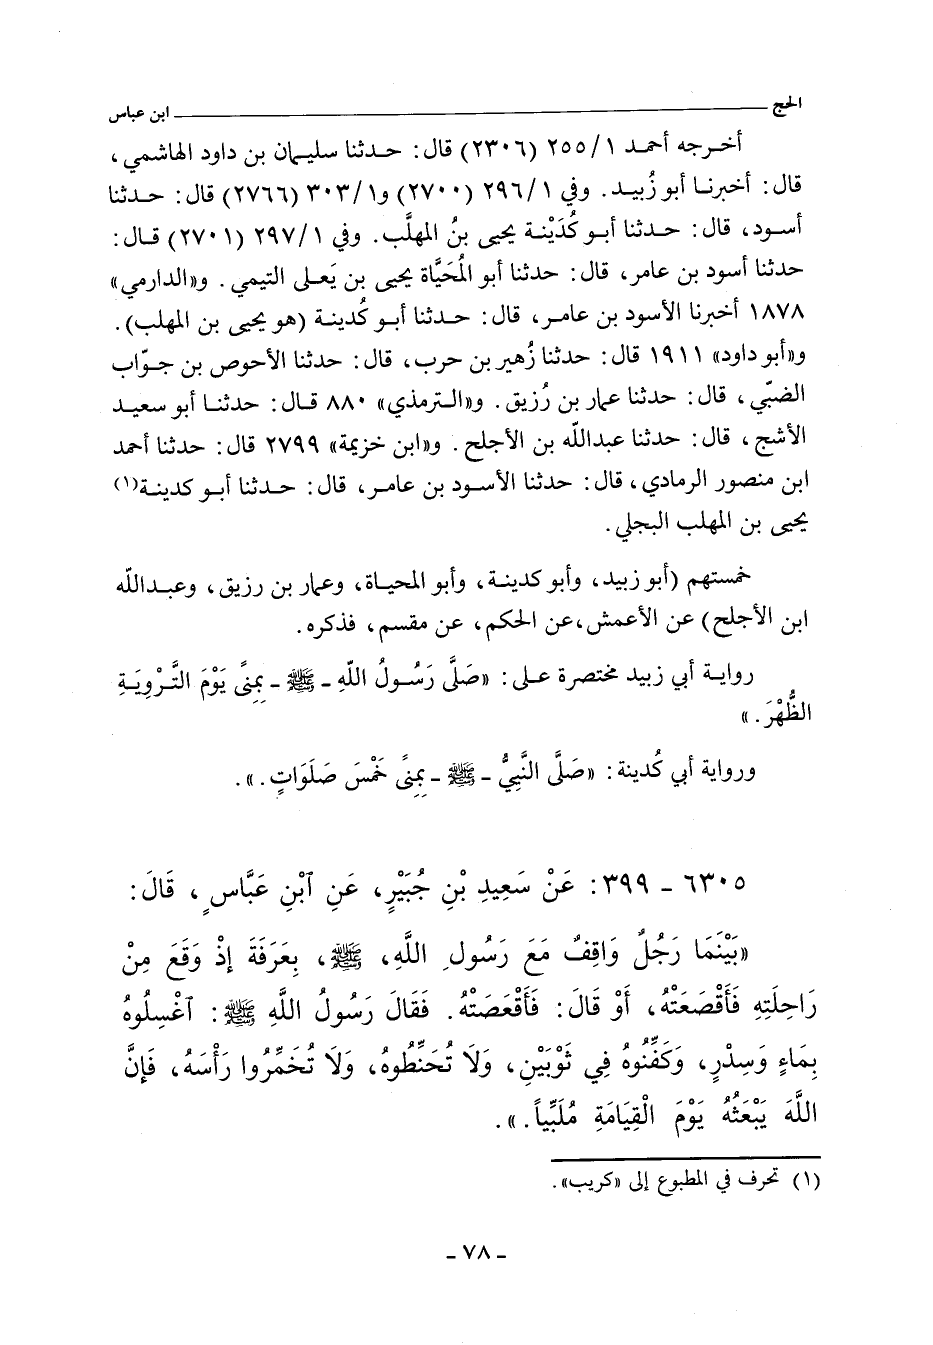 الحج ابن عباس
أخرجه أحمد ١/ ٢٥٥ (٢٣٠٦) قال: حدثنا سليمان بن داود الهاشمي،
قال: أخبرنا أبو زُبيد. وفي ١/ ٢٩٦ (٢٧٠٠) و١/ ٣٠٣ (٢٧٦٦) قال: حدثنا
أسود، قال: حدثنا أبو كُدَيْنة يحيى بنُ المهلَّب. وفي ١/ ٢٩٧ (٢٧٠١) قال:
حدثنا أسود بن عامر، قال: حدثنا أبو المُحَيَّاة يحيى بن يَعلى التيمي. و«الدارمي»
١٨٧٨ أخبرنا الأسود بن عامر، قال: حدثنا أبو كُدينة (هو يحيى بن المهلب).
و«أبو داود» ١٩١١ قال: حدثنا زُهير بن حرب، قال: حدثنا الأحوص بن جوّاب
الضبّي، قال: حدثنا عمار بن رُزيق. و«الترمذي» ٨٨٠ قال: حدثنا أبو سعيد
الأشج، قال: حدثنا عبدالله بن الأجلح. و«ابن خزيمة» ٢٧٩٩ قال: حدثنا أحمد
ابن منصور الرمادي، قال: حدثنا الأسود بن عامر، قال: حدثنا أبو كدينة(١)
يحيى بن المهلب البجلي.
خمستهم (أبو زبيد، وأبو كدينة، وأبو المحياة، وعمار بن رزيق، وعبدالله
ابن الأجلح) عن الأعمش، عن الحكم، عن مقسم، فذكره.
رواية أبي زبيد مختصرة على: «صَلَّى رَسُولُ اللهِ ـ ﷺ ـ بِمِنًى يَوْمَ التَّرْوِيَةِ
الظُّهْرَ.»
ورواية أبي كُدينة: «صَلَّى النَّبِيُّ ـ ﷺ ـ بِمِنًى خَمْسَ صَلَوَاتٍ.».
٦٣٠٥ ـ ٣٩٩: عَنْ سَعِيدِ بْنِ جُبَيْرٍ، عَنِ ٱبْنِ عَبَّاسٍ، قَالَ:
«بَيْنَمَا رَجُلٌ وَاقِفٌ مَعَ رَسُولِ اللَّهِ، ﷺ، بِعَرَفَةَ إِذْ وَقَعَ مِنْ
رَاحِلَتِهِ فَأَقْصَعَتْهُ، أَوْ قَالَ: فَأَقْعَصَتْهُ. فَقَالَ رَسُولُ اللَّهِ ﷺ: ٱغْسِلُوهُ
بِمَاءٍ وَسِدْرٍ، وَكَفِّنُوهُ فِي ثَوْبَيْنِ، وَلَا تُحَنِّطُوهُ، وَلَا تُخَمِّرُوا رَأْسَهُ، فَإِنَّ
اللَّهَ يَبْعَثُهُ يَوْمَ الْقِيَامَةِ مُلَبِّياً.».
(١) تحرف في المطبوع إلى «كريب».
ـ ٧٨ ـ